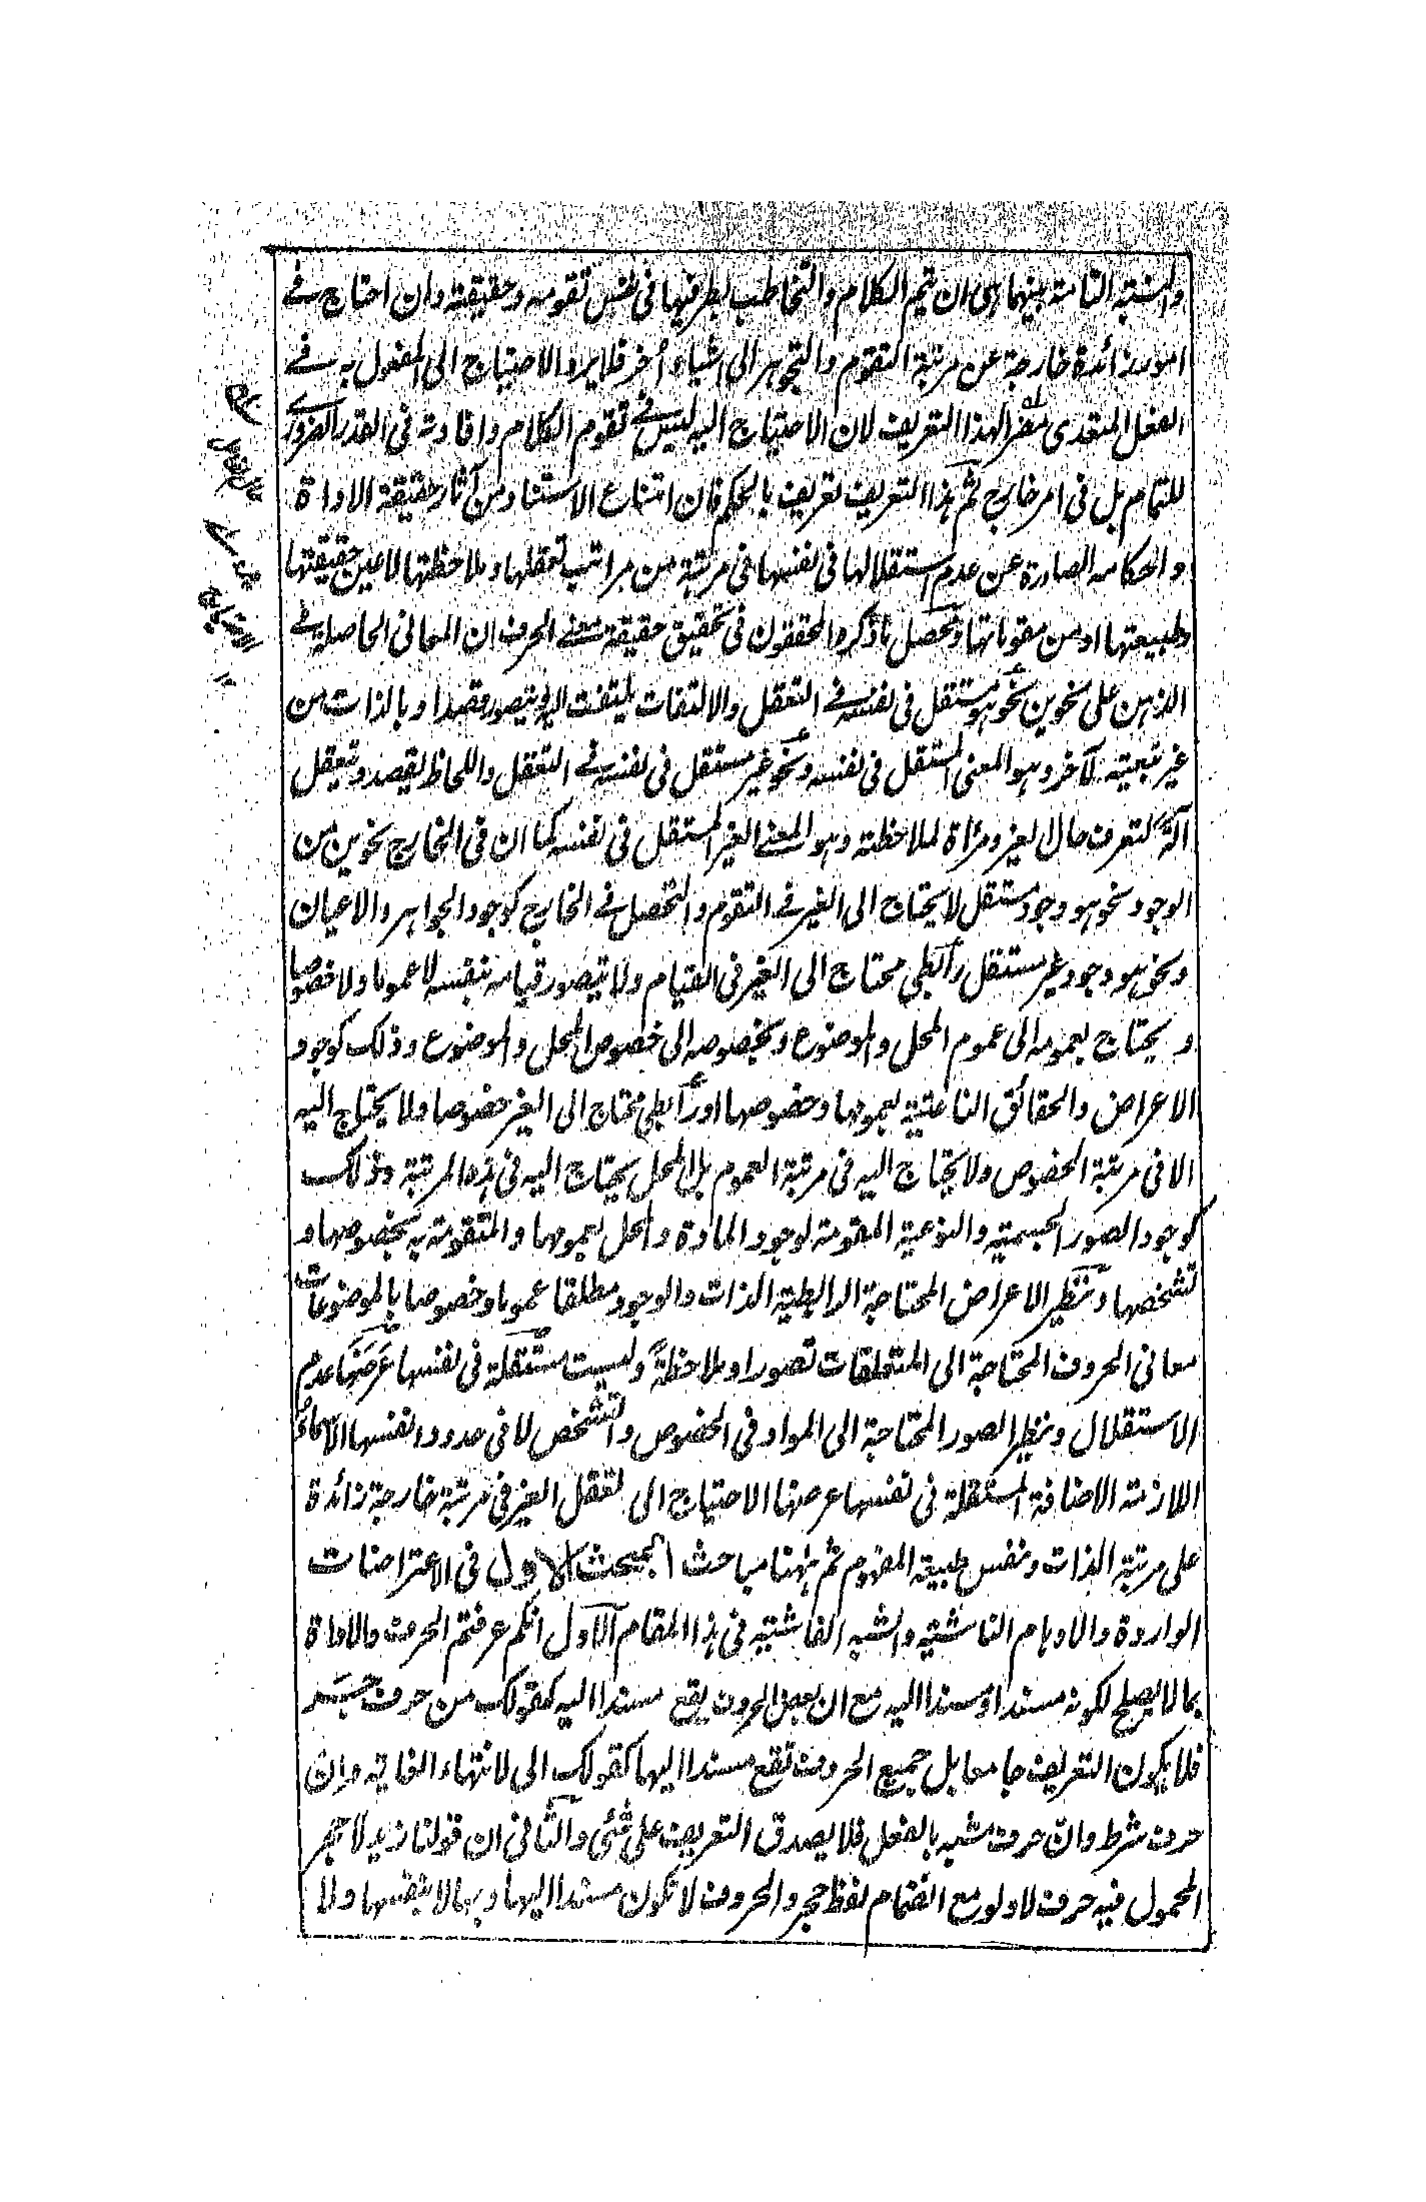 والنسبة التامة بينهما هى ان يتم الكلام والتخاطب بطرفيها فى نفس تقومه وحقيقته وان احتاج فے
امور زائدة خارجة عن مرتبة التقوم والتجوهر الى اشياء أخر فلا يرد الاحتياج الى المفعول به فے
الفعل المتعدى مضرا لهذا التعريف لان الاحتياج اليه ليس فے تقوم الكلام وافادته فى القدر الضرورے
للتمام بل فى امر خارج ثم هذا التعريف تعريف بالحكم فان امتناع الاستناد من آثار حقيقة الاداة
واحكامه الصادرة عن عدم استقلالها فى نفسها فى مرتبة من مراتب تعقلها وملاحظتها لا عين حقيقتها
وطبيعتها او من مقوماتها وتحصل ما ذكره المحققون فى تحقيق حقيقة معنے الحرف ان المعانى الحاصلة فے
الذهن على نحوين نحو هو مستقل فى نفسه فے التعقل والالتفات يلتفت اليه ويتصور قصدا وبالذات من
غير تبعيته لآخر وهو المعنى المستقل فى نفسه ونحو غير مستقل فى نفسه فے التعقل واللحاظ يقصد ويتعقل
آلة لتعرف حال الغير ومرآة لملاحظته وهو المعنے الغير المستقل فى نفسه كما ان فى الخارج نحوين من
الوجود نحو هو وجود مستقل لا يحتاج الى الغير فے التقوم والتحصل فے الخارج كوجود الجواهر والاعيان
ونحو هو وجود غير مستقل رابطى محتاج الى الغير فى القيام ولا يتصور قيامه بنفسه لا عموما ولا خصوصا
ويحتاج بعمومه الى عموم المحل والموضوع وبخصوصه الى خصوص المحل والموضوع وذلك كوجود
الاعراض والحقائق الناعتية بعمومها وخصوصها او رابطى محتاج الى الغير خصوصا ولا يحتاج اليه
الا فى مرتبة الخصوص ولا يحتاج اليه فى مرتبة العموم بل المحل يحتاج اليه فى هذه المرتبة وذلك
كوجود الصور الجسمية والنوعية المقومة لوجود المادة والمحل بعمومها والمتقومة به بخصوصها و
تشخصها ونظير الاعراض المحتاجة الرابطية الذات والوجود مطلقا عموما وخصوصا بالموضوعات
معانى الحروف المحتاجة الى المتعلقات تصورا وملاحظة وليست مستقلة فى نفسها عرضها عدم
الاستقلال ونظير الصور المحتاجة الى المواد فى الخصوص والتشخص لا فى حدود انفسها الاسماء
اللازمة الاضافة المستقلة فى نفسها عرضها الاحتياج الى تعقل الغير فى مرتبة خارجة زائدة
على مرتبة الذات ونفس طبيعة المفهوم ثم ههنا مباحث المبحث الاول فى الاعتراضات
الواردة والاوهام الناشئية والشبه الفاشئية فى هذا المقام الاول انكم عرفتم الحرف والاداة
بما لا يصلح لكونه مسندا او مسندا اليه مع ان بعض الحروف يقع مسندا اليه كقولك من حرف جر
فلا يكون التعريف جامعا بل جميع الحروف تقع مسندا اليها كقولك الى لانتهاء الغاية وان
حرف شرط وان حرف مشبه بالفعل فلا يصدق التعريف على شئى والثانى ان قولنا زيد لا حجر
المحمول فيه حرف لا ولو مع انضمام لفظ حجر والحروف لا تكون مسندا اليها وبها لا بنفسها ولا